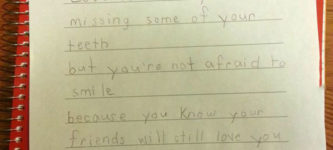 missing some of your
teeth
but you're not afraid to
smile
because you know your
friends will still love you